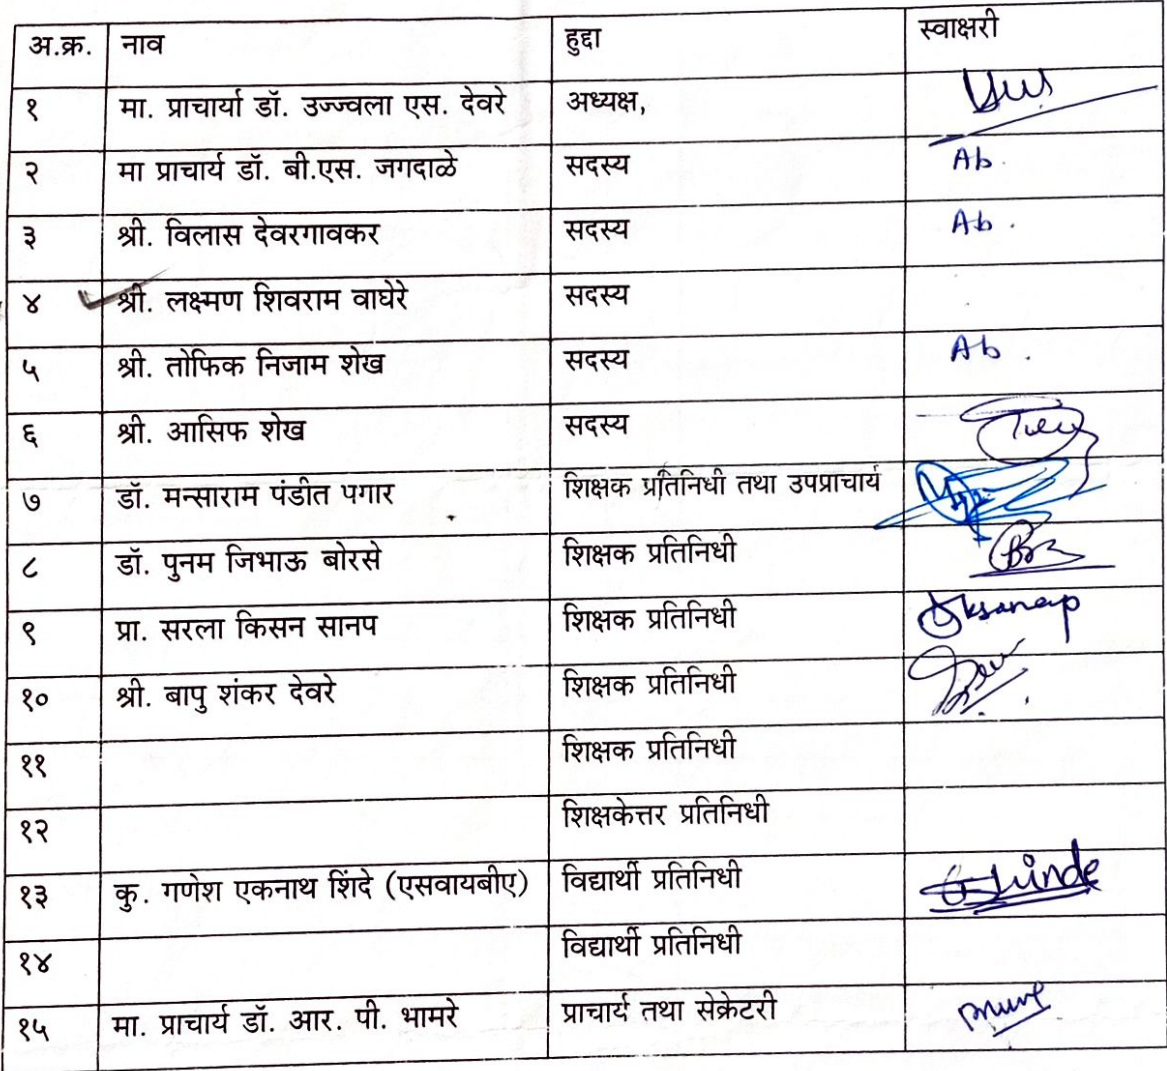 अ.क्र. नाव हुद्दा स्वाक्षरी
१ मा. प्राचार्या डॉ. उज्ज्वला एस. देवरे अध्यक्ष,
२ मा प्राचार्य डॉ. बी.एस. जगदाळे सदस्य Ab.
३ श्री. विलास देवरगावकर सदस्य Ab.
४ श्री. लक्ष्मण शिवराम वाघेरे सदस्य
५ श्री. तोफिक निजाम शेख सदस्य Ab.
६ श्री. आसिफ शेख सदस्य
७ डॉ. मन्साराम पंडीत पगार शिक्षक प्रतिनिधी तथा उपप्राचार्य
८ डॉ. पुनम जिभाऊ बोरसे शिक्षक प्रतिनिधी
९ प्रा. सरला किसन सानप शिक्षक प्रतिनिधी
१० श्री. बापु शंकर देवरे शिक्षक प्रतिनिधी
११ शिक्षक प्रतिनिधी
१२ शिक्षकेत्तर प्रतिनिधी
१३ कु. गणेश एकनाथ शिंदे (एसवायबीए) विद्यार्थी प्रतिनिधी
१४ विद्यार्थी प्रतिनिधी
१५ मा. प्राचार्य डॉ. आर. पी. भामरे प्राचार्य तथा सेक्रेटरी